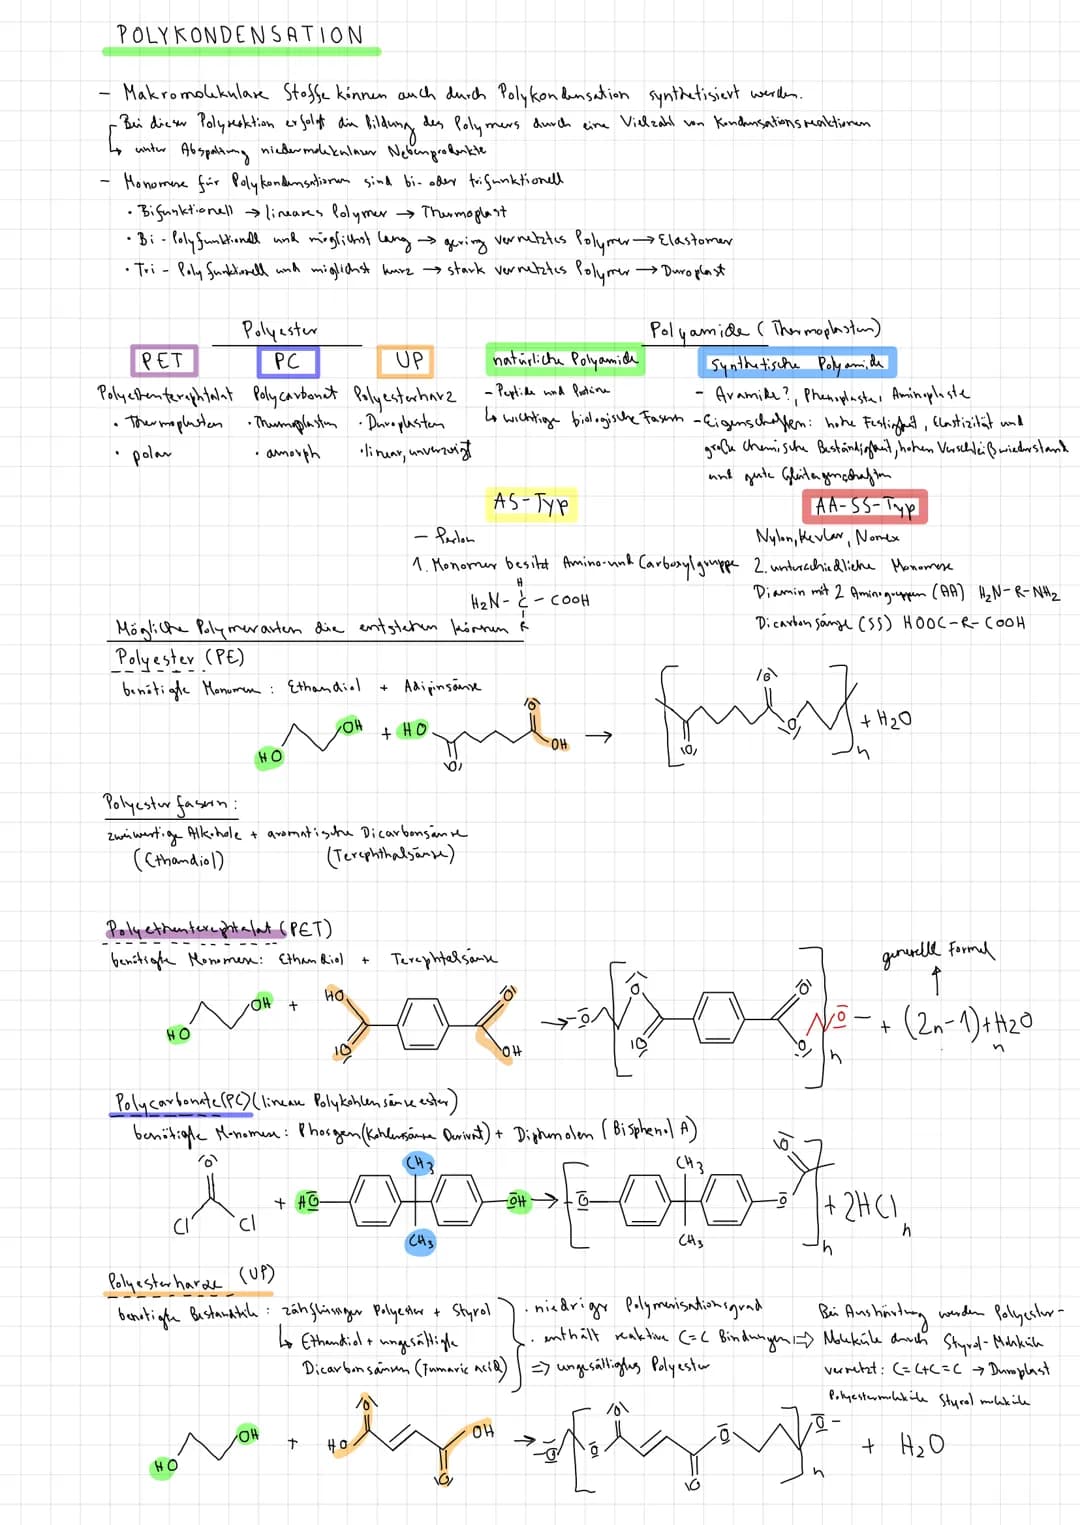 POLYKONDENSATION
- Makromolekulare Stoffe können auch durch Polykondensation synthetisiert werden.
Bei dieser Polyreaktion erfolgt die Bildung des Polymers durch eine Vielzahl von Kondensationsreaktionen
↳ unter Abspaltung niedermolekularer Nebenprodukte
- Monomere für Polykondensationen sind bi- oder trifunktionell
· Bifunktionell → lineares Polymer → Thermoplast
· Bi - Polyfunktionell und möglichst lang → gering vernetztes Polymer → Elastomer
· Tri - Polyfunktionell und möglichst kurz → stark vernetztes Polymer → Duroplast
Polyester
Polyamide (Thermoplasten)
PET PC UP
natürliche Polyamide
Synthetische Polyamide
Polyethenterephtalat Polycarbonat Polyesterharz
· Thermoplasten · Thermoplasten · Duroplasten
· polar · amorph · linear, unverzweigt
- Peptide und Proteine
↳ wichtige biologische Fasern
- Aramide?, Phenoplaste, Aminoplaste
- Eigenschaften: hohe Festigkeit, Elastizität und
große chemische Beständigkeit, hohen Verschleißwiederstand
und gute Gleiteigenschaften
AS-Typ
AA-SS-Typ
- Perlon
1. Monomer besitzt Amino- und Carboxylgruppe
H
H2N - C - COOH
R
Nylon, Kevlar, Nomex
2. unterschiedliche Monomere
Diamin mit 2 Aminogruppen (AA) H2N-R-NH2
Dicarbonsäure (SS) HOOC-R-COOH
Mögliche Polymerarten die entstehen können
Polyester (PE)
benötigte Monomere : Ethandiol + Adipinsäure
HO OH + HO O O OH → [ O O O ]n + H2O
Polyesterfasern:
zweiwertige Alkohole + aromatische Dicarbonsäure
(Ethandiol) (Terephthalsäure)
Polyethenterephtalat (PET)
benötigte Monomere: Ethandiol + Terephtalsäure
generelle Formel
HO OH + HO O O OH → O [ O O O O ]n O + (2n-1) + H2O n
Polycarbonate (PC) (lineare Polykohlensäureester)
benötigte Monomere: Phosgen (Kohlensäure Derivat) + Diphenolen (Bisphenol A)
O Cl Cl + HO CH3 CH3 OH → [ O CH3 CH3 O O ]n + 2HCl n
Polyesterharze (UP)
benötigte Bestandteile : zähflüssiger Polyester + Styrol
↳ Ethandiol + ungesättigte
Dicarbonsäuren (Fumaric Acid)
· niedriger Polymerisationsgrad
· enthält reaktive C=C Bindungen
⇒ ungesättigtes Polyester
Bei Aushärtung werden Polyester-
⇒ Moleküle durch Styrol-Moleküle
vernetzt: C=C + C=C → Duroplast
Polyestermoleküle Styrolmoleküle
HO OH + HO O O OH → O [ O O O O ]n O + H2O